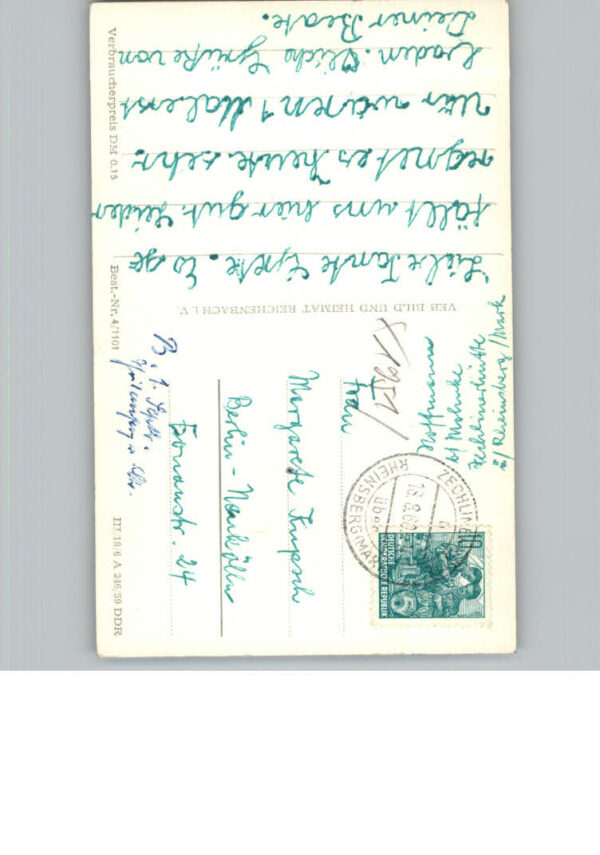 Liebe Tante Grete. Es ge-
fällt uns hier gut. Leider
regnet es heute sehr.
Wir waren 1 Mal erst
baden. Herzliche Grüße von
Deiner Beate.
VEB BILD UND HEIMAT REICHENBACH I. V.
Hoffmann
b/ Mahnke
Zechlinerhütte
ü/ Rheinsberg/Mark
Frau
Margarete Kupsch
Berlin-Neukölln
Fonanstr. 24
B. 1. Septr.
ZECHLINERH
über
RHEINSBERG(MARK)
18.8.60
DEUTSCHE
DEMOKRATISCHE REPUBLIK
5
Verbraucherpreis DM 0,15
Best.-Nr. 4/1101
III/18/6 A 246/59 DDR